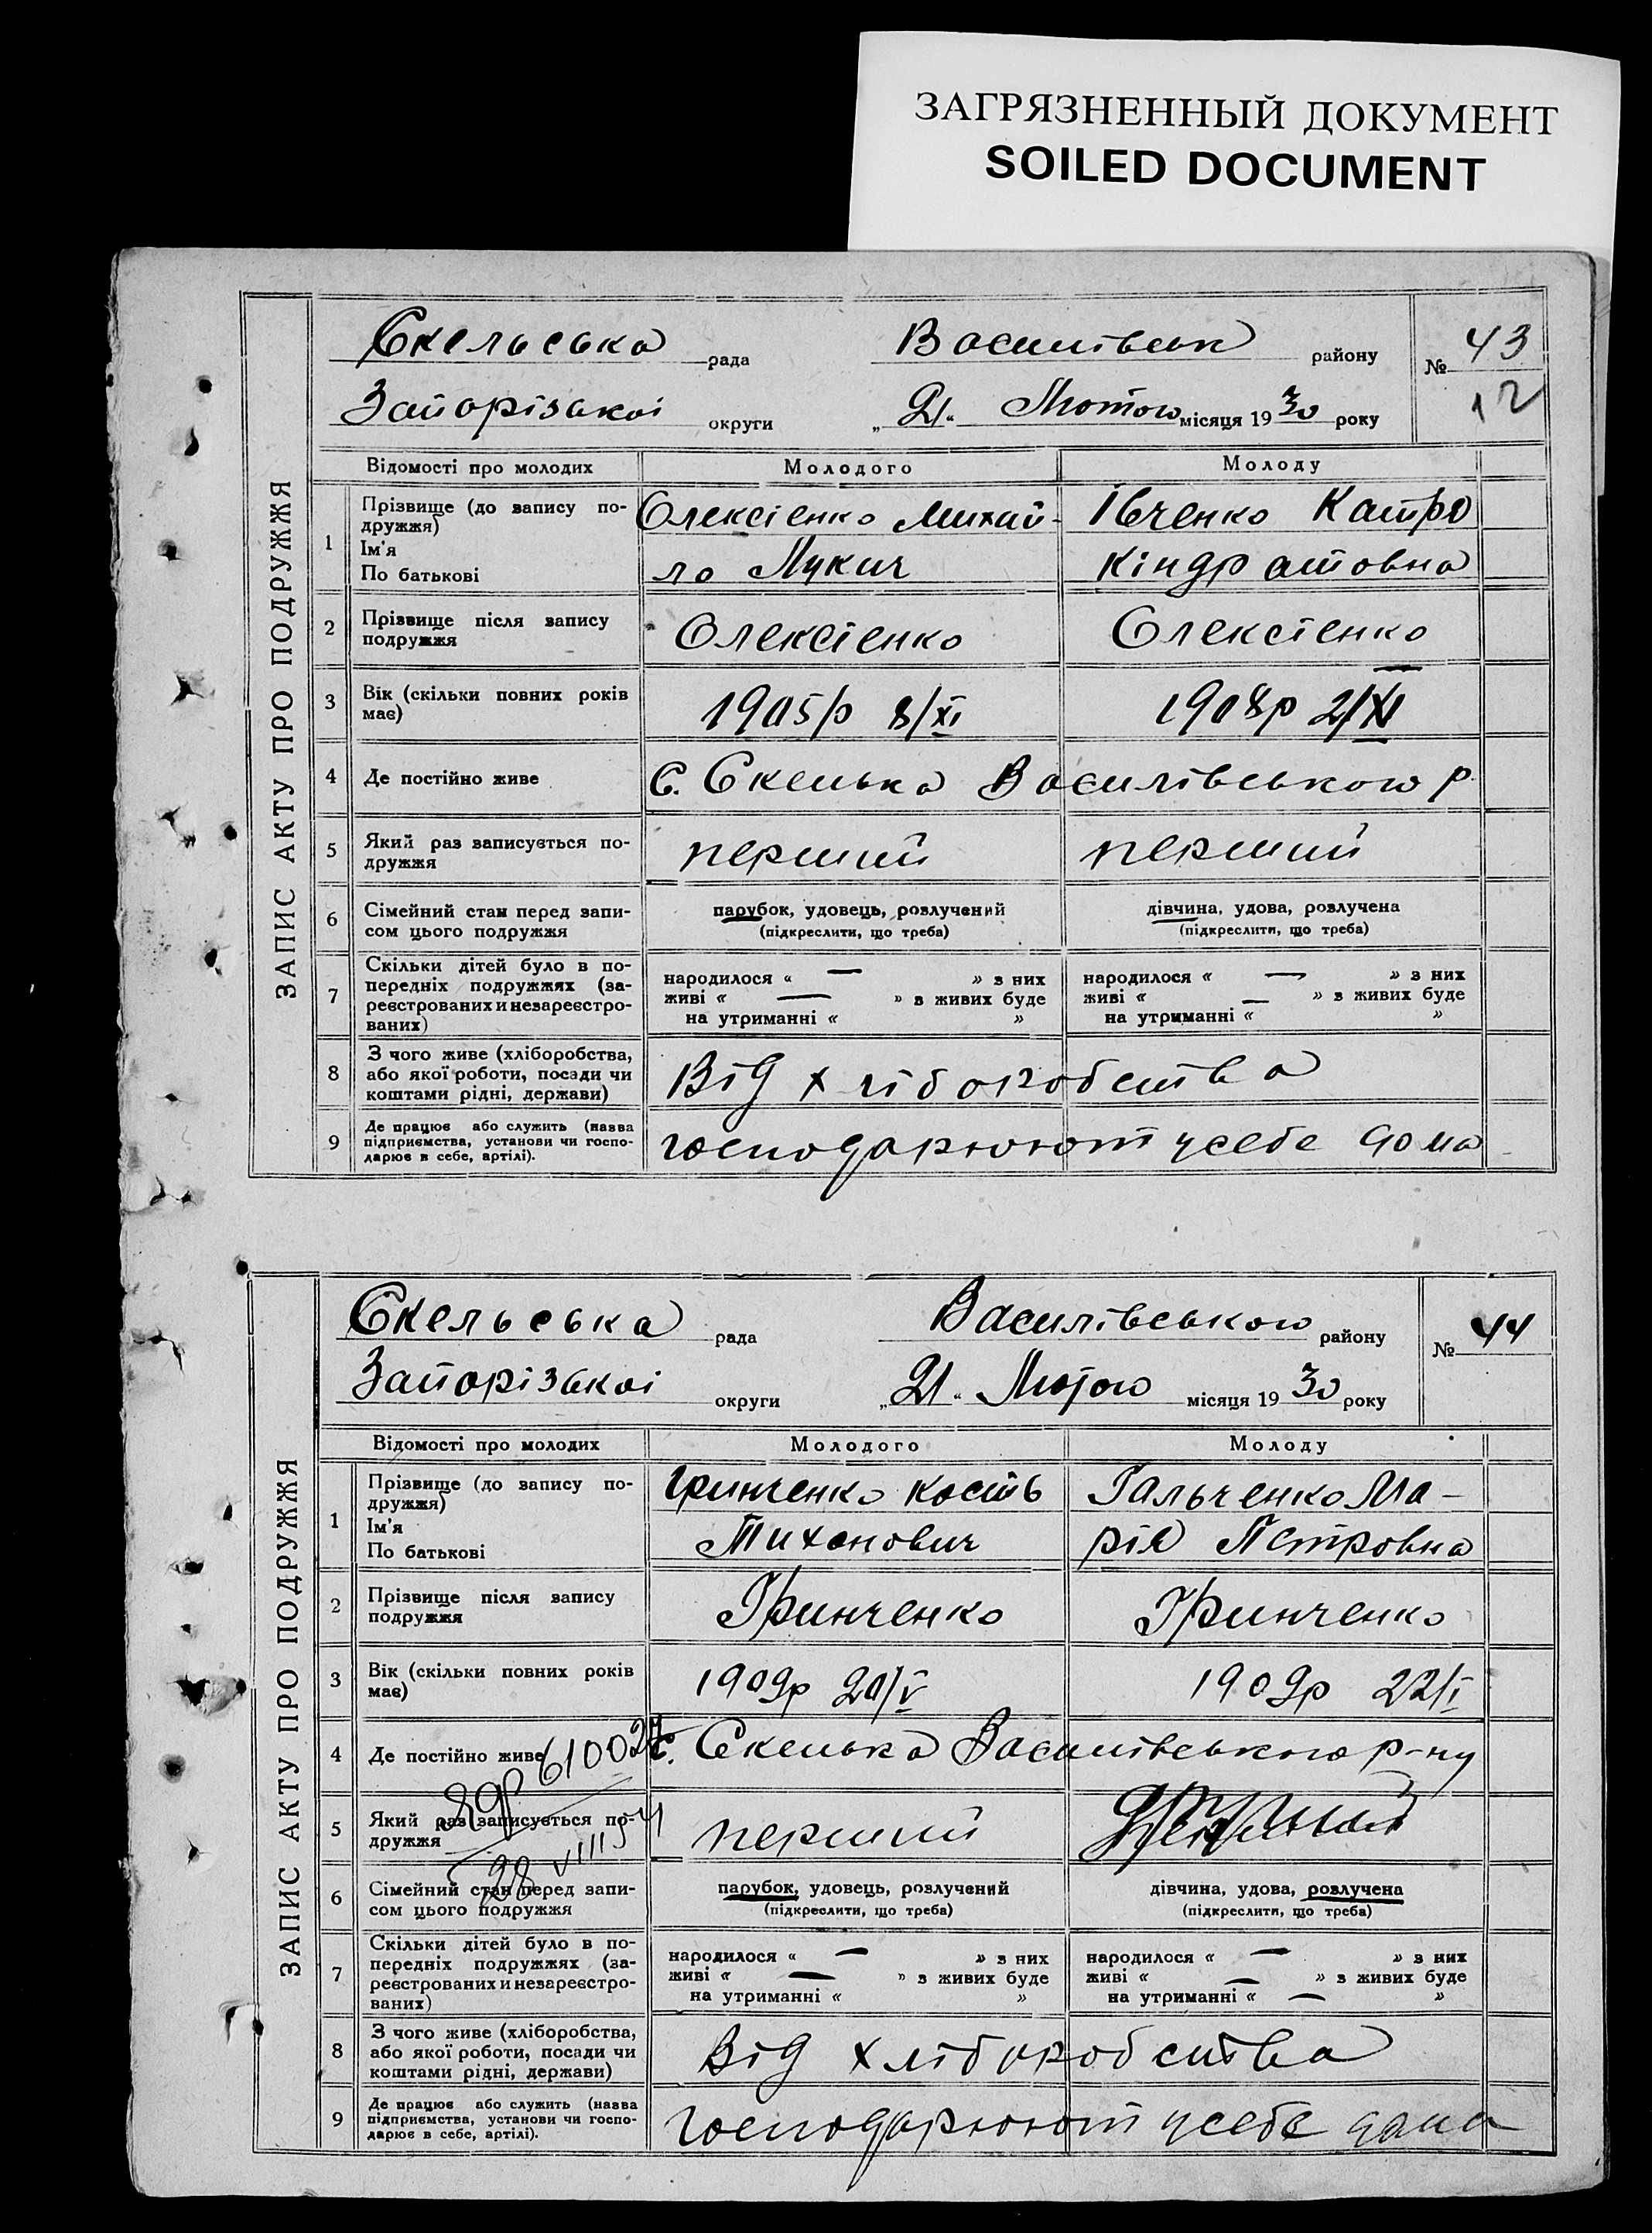 ЗАГРЯЗНЕННЫЙ ДОКУМЕНТ
SOILED DOCUMENT
ЗАПИС АКТУ ПРО ПОДРУЖЖЯ
Скельська рада Василівськ району № 43
12
Запорізькоі округи „21“ Лютого місяця 1930 року
Відомості про молодих Молодого Молоду
1 Прізвище (до запису подружжя) Олексієнко Михай- Івченко Катря
Ім'я
По батькові ло Лукич Кіндратовна
2 Прізвище після запису
подружжя Олексієнко Олексієнко
3 Вік (скільки повних років
має) 1905р 8/XI 1908р 2/XI
4 Де постійно живе С. Скелька Василівського р
5 Який раз записується по-
дружжя перший перший
6 Сімейний стан перед запи- парубок, удовець, розлучений дівчина, удова, розлучена
сом цього подружжя (підкреслити, що треба) (підкреслити, що треба)
7 Скільки дітей було в по-
передніх подружжях (за- народилося « — » з них народилося « — » з них
реєстрованих и незареєстро- живі « — » з живих буде живі « — » з живих буде
ваних) на утриманні « » на утриманні « »
8 З чого живе (хліборобства,
або якої роботи, посади чи Від хліборобства
коштами рідні, держави)
9 Де працює або служить (назва
підприємства, установи чи госпо- господарюють усебе дома
дарює в себе, артілі).
ЗАПИС АКТУ ПРО ПОДРУЖЖЯ
Скельська рада Василівського району № 44
Запорізькоі округи „21“ Лютого місяця 1930 року
Відомості про молодих Молодого Молоду
1 Прізвище (до запису по-
дружжя) Гринченко Кость Гальченко Ма-
Ім'я
По батькові Тиханович рія Петровна
2 Прізвище після запису
подружжя Гринченко Гринченко
3 Вік (скільки повних років
має) 1909р 20/V 1909р 22/I
4 Де постійно живе С. Скелька Василівського р-ну
5 Який раз записується по-
дружжя перший
28 VIII
6 Сімейний стан перед запи- парубок, удовець, розлучений дівчина, удова, розлучена
сом цього подружжя (підкреслити, що треба) (підкреслити, що треба)
7 Скільки дітей було в по-
передніх подружжях (за- народилося « — » з них народилося « — » з них
реєстрованих и незареєстро- живі « — » з живих буде живі « — » з живих буде
ваних) на утриманні « » на утриманні « — »
8 З чого живе (хліборобства,
або якої роботи, посади чи Від хліборобства
коштами рідні, держави)
9 Де працює або служить (назва
підприємства, установи чи госпо- господарюють усебе дома
дарює в себе, артілі).